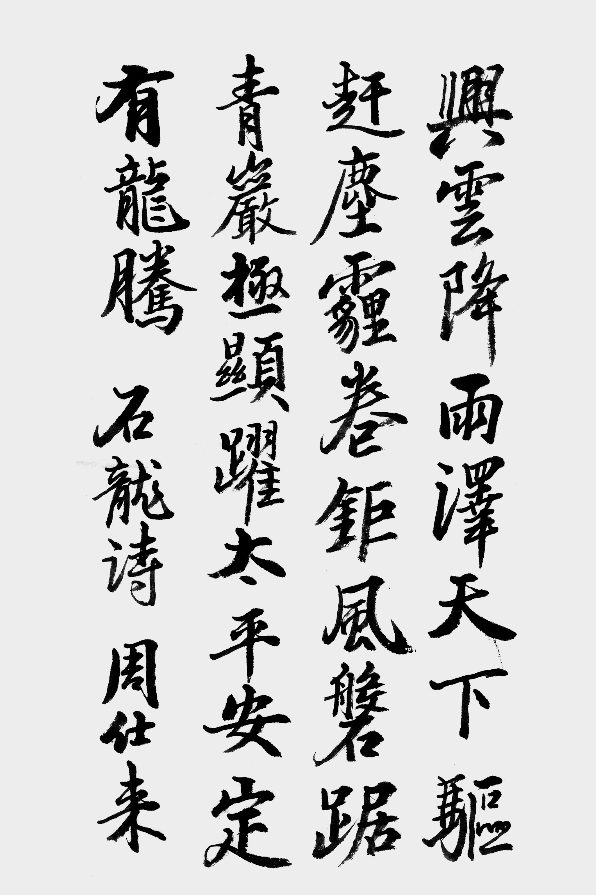 興雲降雨澤天下驅
赶塵霾卷鉅風磐踞
青巖極顯躍太平安定
有龍騰 石龍诗 周仕来